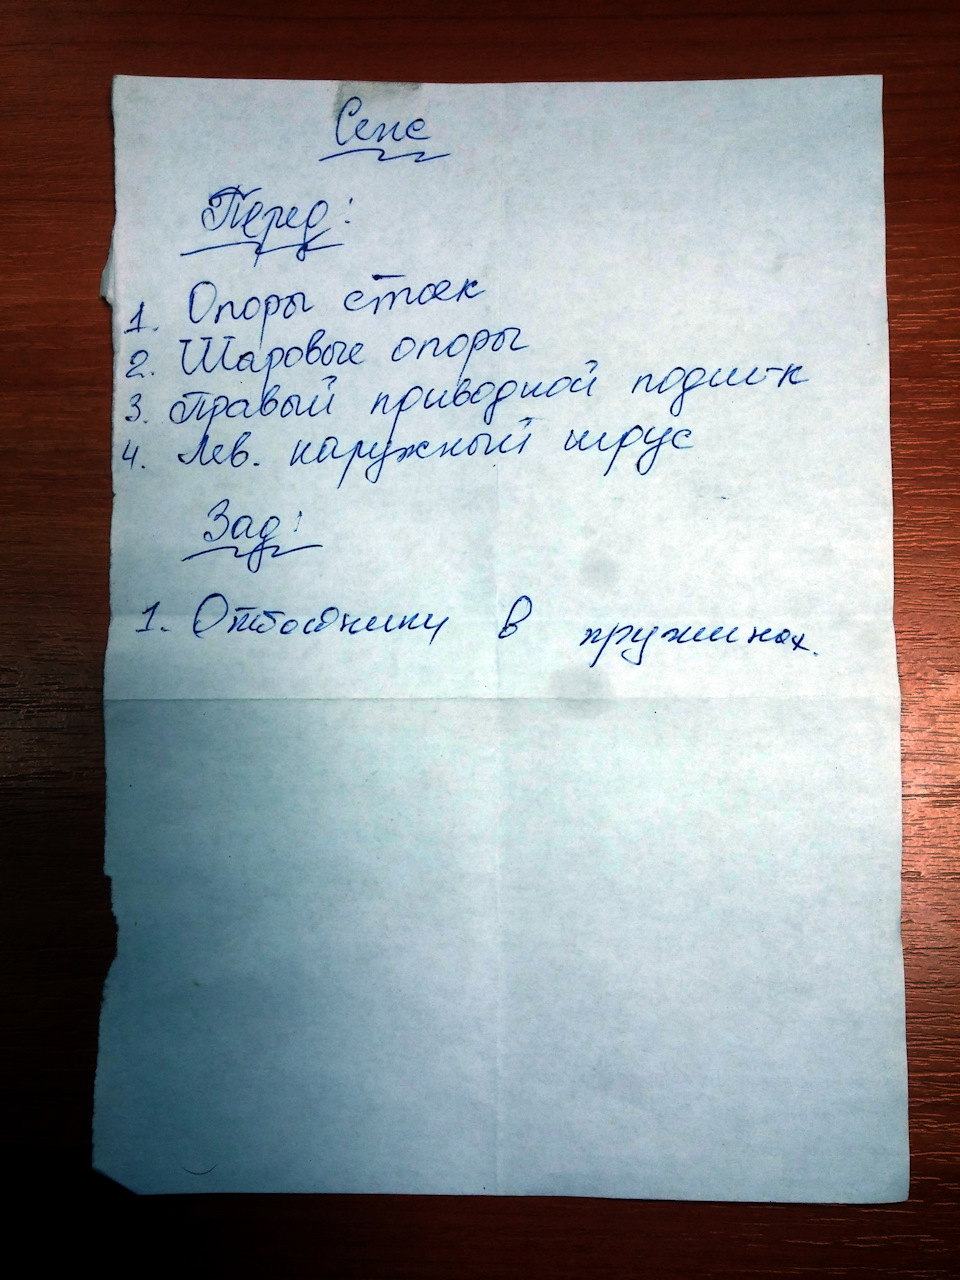 Сенс
Перед:
1. Опоры стоек
2. Шаровые опоры
3. Правый приводной подш-к
4. Лев. наружный шрус
Зад:
1. Отбойники в пружинах.